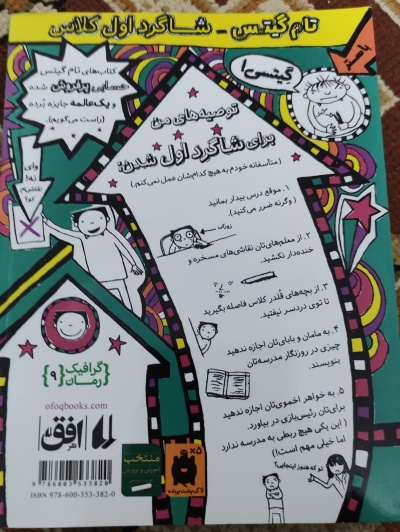 تام گیتس - شاگرد اول کلاس
گیتسی!
کتاب‌های تام گیتس
حسابی پرفروش شده
و یک‌عالمه جایزه برده
(راست می‌گویم).
توصیه‌های من
برای شاگرد اول شدن:
(متأسفانه خودم به هیچ کدام‌شان عمل نمی‌کنم.)
وای
نه!
۱. موقع درس بیدار بمانید
(وگرنه ضرر می‌کنید).
زبان
۲. از معلم‌های‌تان نقاشی‌های مسخره و
خنده‌دار نکشید.
۳. از بچه‌های قُلدر کلاس فاصله بگیرید
تا توی دردسر نیفتید.
۴. به مامان و بابای‌تان اجازه ندهید
چیزی در روزنگار مدرسه‌تان
بنویسند.
۵. به خواهر اخموی‌تان اجازه ندهید
برای‌تان رئیس‌بازی در بیاورد.
(این یکی هیچ ربطی به مدرسه ندارد
اما خیلی مهم است!)
تو که هنوز اینجایی!
گرافیک
رمان
{۹}
ofoqbooks.com
نشر افق
9 786003 533820
ISBN 978-600-353-382-0
منتخب
آموزش و پرورش
۵×
لاک‌پشت پرنده